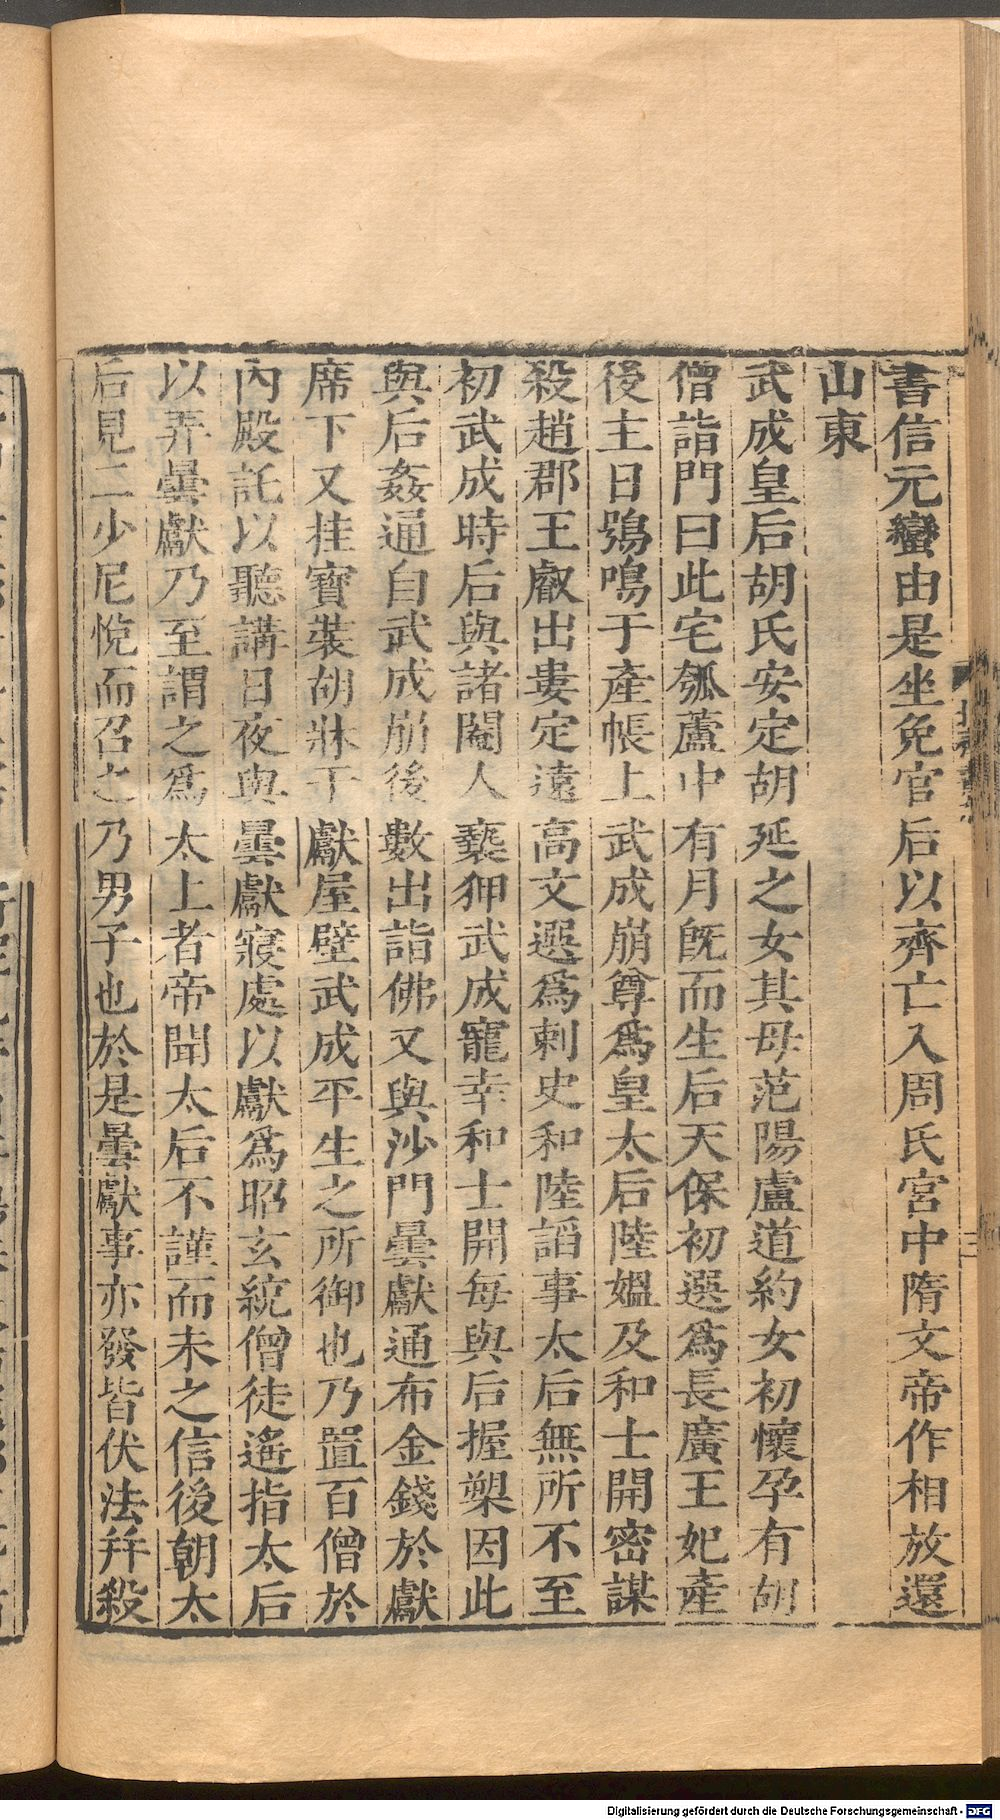 書信元蠻由是坐免官后以齊亡入周氏宮中隋文帝作相放還
山東
武成皇后胡氏安定胡延之女其母范陽盧道約女初懷孕有胡
僧詣門曰此宅瓠蘆中有月旣而生后天保初選爲長廣王妃產
後主日鴞鳴于產帳上武成崩尊爲皇太后陸媼及和士開密謀
殺趙郡王叡出婁定遠高文遥爲刺史和陸諂事太后無所不至
初武成時后與諸閹人褻狎武成寵幸和士開每與后握槊因此
與后姦通自武成崩後數出詣佛又與沙門曇獻通布金錢於獻
席下又挂寶裝胡牀于獻屋壁武成平生之所御也乃置百僧於
內殿託以聽講日夜與曇獻寢處以獻爲昭玄統僧徒遙指太后
以弄曇獻乃至謂之爲太上者帝聞太后不謹而未之信後朝太
后見二少尼悅而召之乃男子也於是曇獻事亦發皆伏法幷殺
三
Digitalisierung gefördert durch die Deutsche Forschungsgemeinschaft - DFG